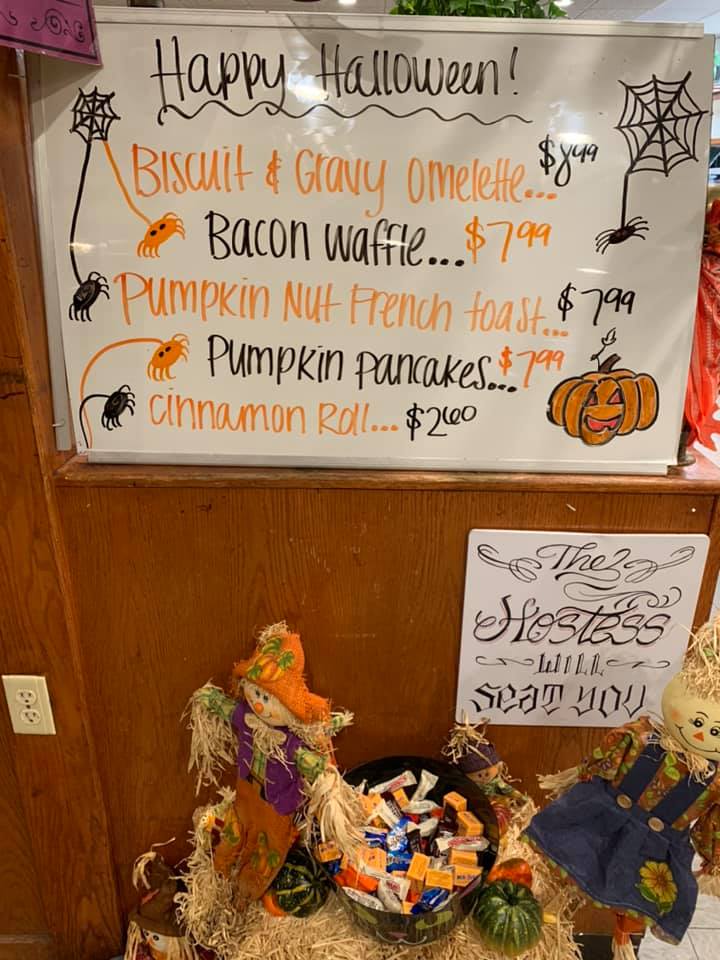 Happy Halloween!
Biscuit & Gravy omelette... $8.99
Bacon waffle... $7.99
Pumpkin Nut French toast... $7.99
Pumpkin pancakes... $7.99
cinnamon Roll... $2.60
The
Hostess
WILL
Seat you